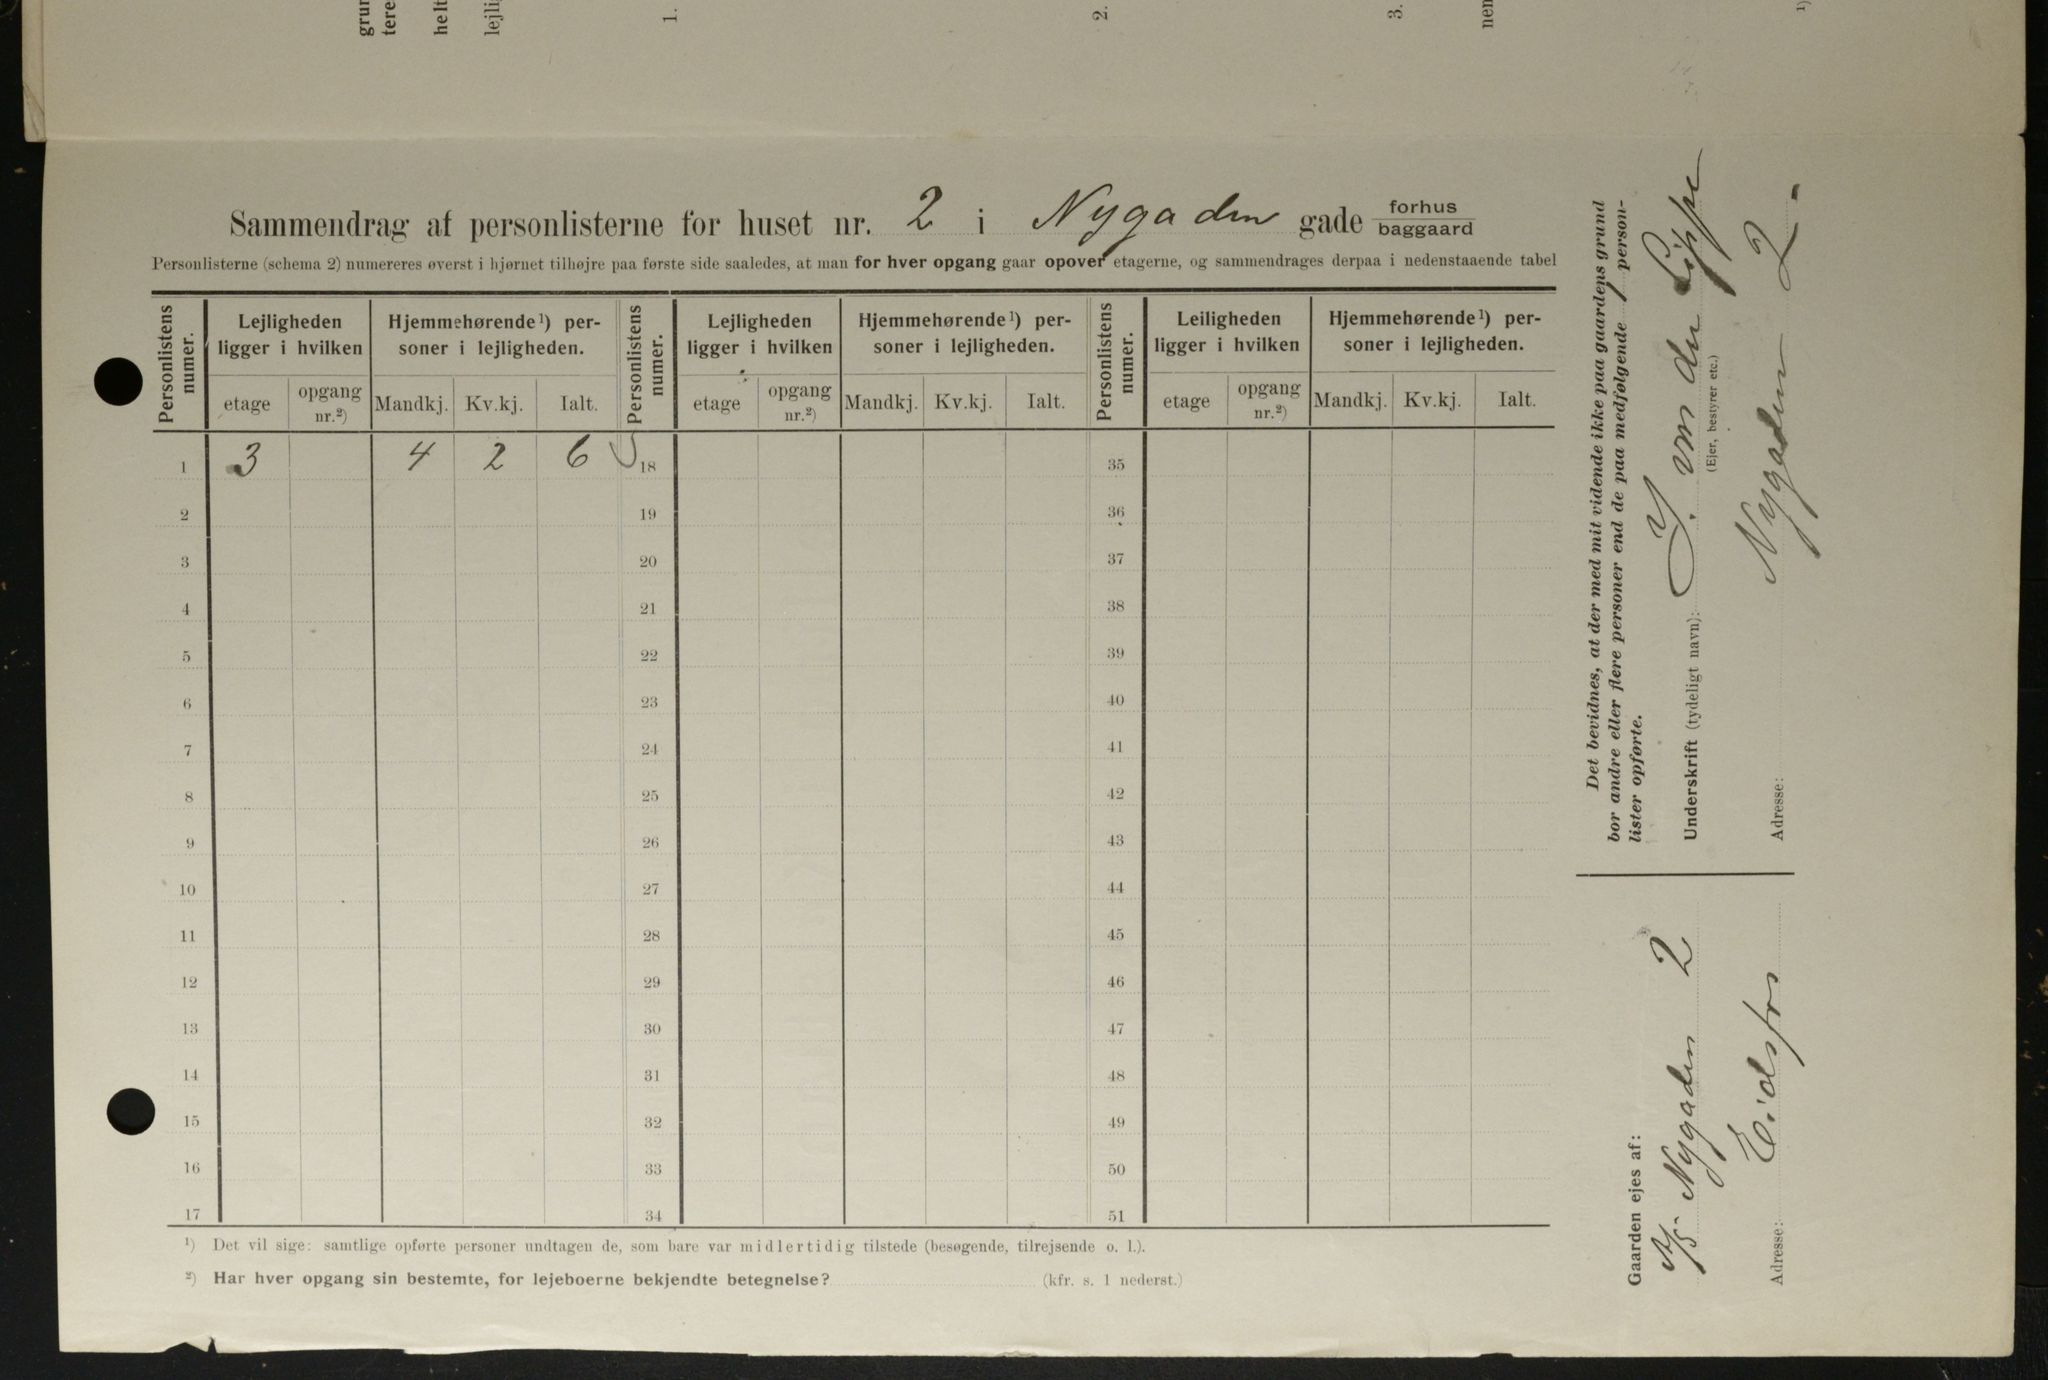 grun
tere
helt
lejlig
1.
2.
3.
nem
1)
Sammendrag af personlisterne for huset nr. 2 i Nygaden gade forhus
baggaard
Personlisterne (schema 2) numereres øverst i hjørnet tilhøjre paa første side saaledes, at man for hver opgang gaar opover etagerne, og sammendrages derpaa i nedenstaaende tabel
Personlistens numer. Lejligheden ligger i hvilken Hjemmehørende ¹) personer i lejligheden. Personlistens numer. Lejligheden ligger i hvilken Hjemmehørende ¹) personer i lejligheden. Personlistens numer. Leiligheden ligger i hvilken Hjemmehørende ¹) personer i lejligheden.
etage opgang nr.²) Mandkj. Kv.kj. Ialt. etage opgang nr.²) Mandkj. Kv.kj. Ialt. etage opgang nr.²) Mandkj. Kv.kj. Ialt.
1 3 4 2 6 18 35
2 19 36
3 20 37
4 21 38
5 22 39
6 23 40
7 24 41
8 25 42
9 26 43
10 27 44
11 28 45
12 29 46
13 30 47
14 31 48
15 32 49
16 33 50
17 34 51
¹) Det vil sige: samtlige opførte personer undtagen de, som bare var midlertidig tilstede (besøgende, tilrejsende o. l.).
²) Har hver opgang sin bestemte, for lejeboerne bekjendte betegnelse? (kfr. s. 1 nederst.)
Det bevidnes, at der med mit vidende ikke paa gaardens grund
bor andre eller flere personer end de paa medfølgende 1 person-
lister opførte.
Underskrift (tydeligt navn): J. von der Lippe
(Ejer, bestyrer etc.)
Adresse: Nygaden 2.
Gaarden ejes af:
A/S Nygaden 2
Adresse: Eidsfos